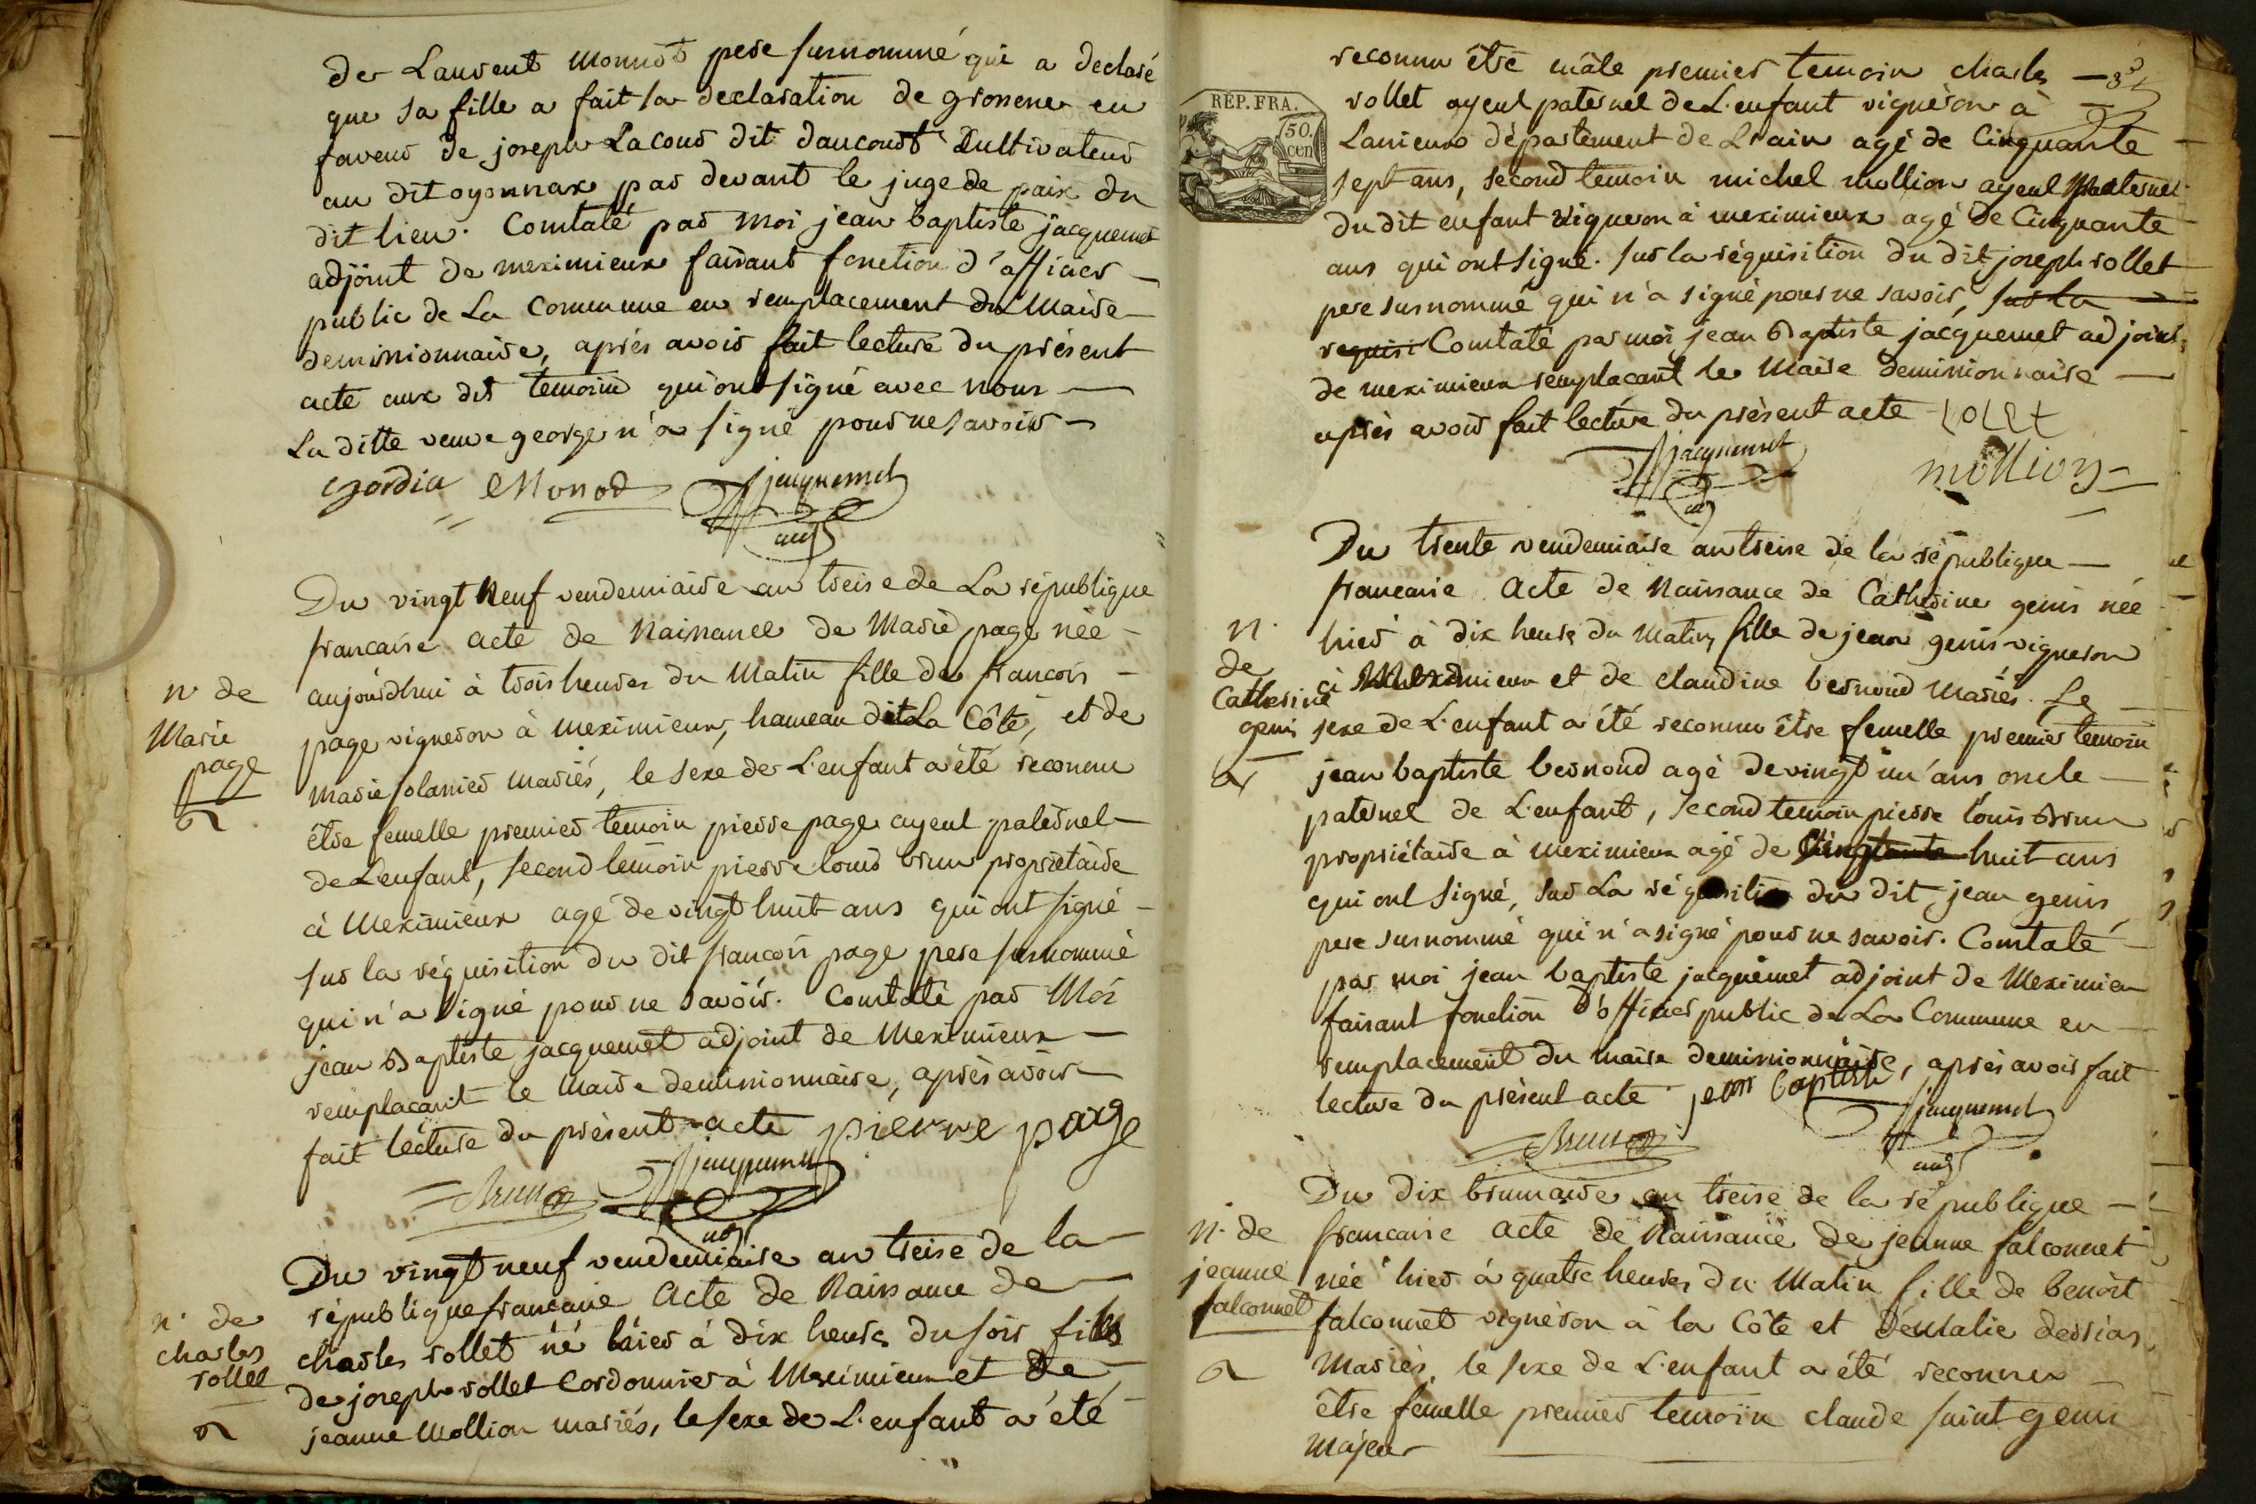 de Laurent monnod pere surnommé qui a declaré
que sa fille a fait sa declaration de grossesse en
faveur de joseph Lacour dit dancourt Cultivateur
au dit oyonnax par devant le juge de paix du
dit lieu. Constaté par moi jean baptiste jacquemet
adjoint de meximieux faisant fonction d'officier
public de La Commune en remplacement du Maire
demissionnaire, après avoir fait lecture du présent
acte aux dits temoins qui ont signé avec nous
La ditte veuve george n'a signé pour ne savoir
Monod jacquemet
adj
Du vingt Neuf vendemiaire an treise de La république
francaise acte de Naissance de Marie page née
aujourdhui à trois heures du Matin fille de francois
n. de
Marie
page
page vigneron à meximieux, hameau dit La Côte, et de
marie solanier mariés, le sexe de L'enfant a été reconnu
être femelle premier temoin pierre page ayeul paternel
de L'enfant, second temoin pierre louis brun propriétaire
à Meximieux agé de vingt huit ans qui ont signé
sur la réquisition du dit francois page pere surnommé
qui n'a signé pour ne savoir. Constaté par Moi
jean Baptiste jacquemet adjoint de Meximieux
remplacant le Maire demissionnaire, après avoir
fait lecture du présent acte pierre page
Brun jacquemet
adj
Du vingt neuf vendemiaire an treise de la
république francaise Acte de Naissance de
n. de
charles
rollet
charles rollet né hier à dix heures du soir fils
de joseph rollet Cordonnier à Meximieux et de
jeanne Mollion mariés, le sexe de L'enfant a été
reconnu être mâle premier temoin charles
RÉP. FRA.
50.
cen
rollet ayeul paternel de L'enfant vigneron à
département de L'ain agé de Cinquante
sept ans, second temoin michel mollion ayeul Maternel
du dit enfant vigneron à meximieux agé de Cinquante
ans qui ont signé. sur la réquisition du dit joseph rollet
pere surnommé qui n'a signé pour ne savoir, sur la
requisi Constaté par moi jean Baptiste jacquemet adjoint
de meximieux remplacant le Maire demissionnaire
après avoir fait lecture du présent acte rolet
jacquemet mollion
adj
Du trente vendemiaire an treise de la république
francaise Acte de Naissance de Catherine genis née
n.
de
Catherine
genis
hier à dix heures du Matin, fille de jean genis vigneron
à Meximieux et de claudine bernoud Mariés. Le
sexe de L'enfant a été reconnu être femelle premier temoin
jean baptiste bernoud agé de vingt un ans oncle
paternel de L'enfant, second temoin pierre louis Brun
propriétaire à meximieux agé de huit ans
qui ont signé, sur La réquisition du dit jean genis
pere surnommé qui n'a signé pour ne savoir. Constaté
par moi jean baptiste jacquemet adjoint de Meximieu
faisant fonction d'officier public de La Commune en
remplacement du maire demissionnaire, après avoir fait
lecture du présent acte jean baptiste
Brun jacquemet
adj
Du dix brumaire an treise de la république
n. de
jeanne
falconnet
francaise acte de Naissance de jeanne falconnet
née hier à quatre heures du Matin fille de benoit
falconnet vigneron à la Côte et d'eulalie dessias
Mariés, le sexe de L'enfant a été reconnu
être femelle premier temoin claude saint genis
majeur